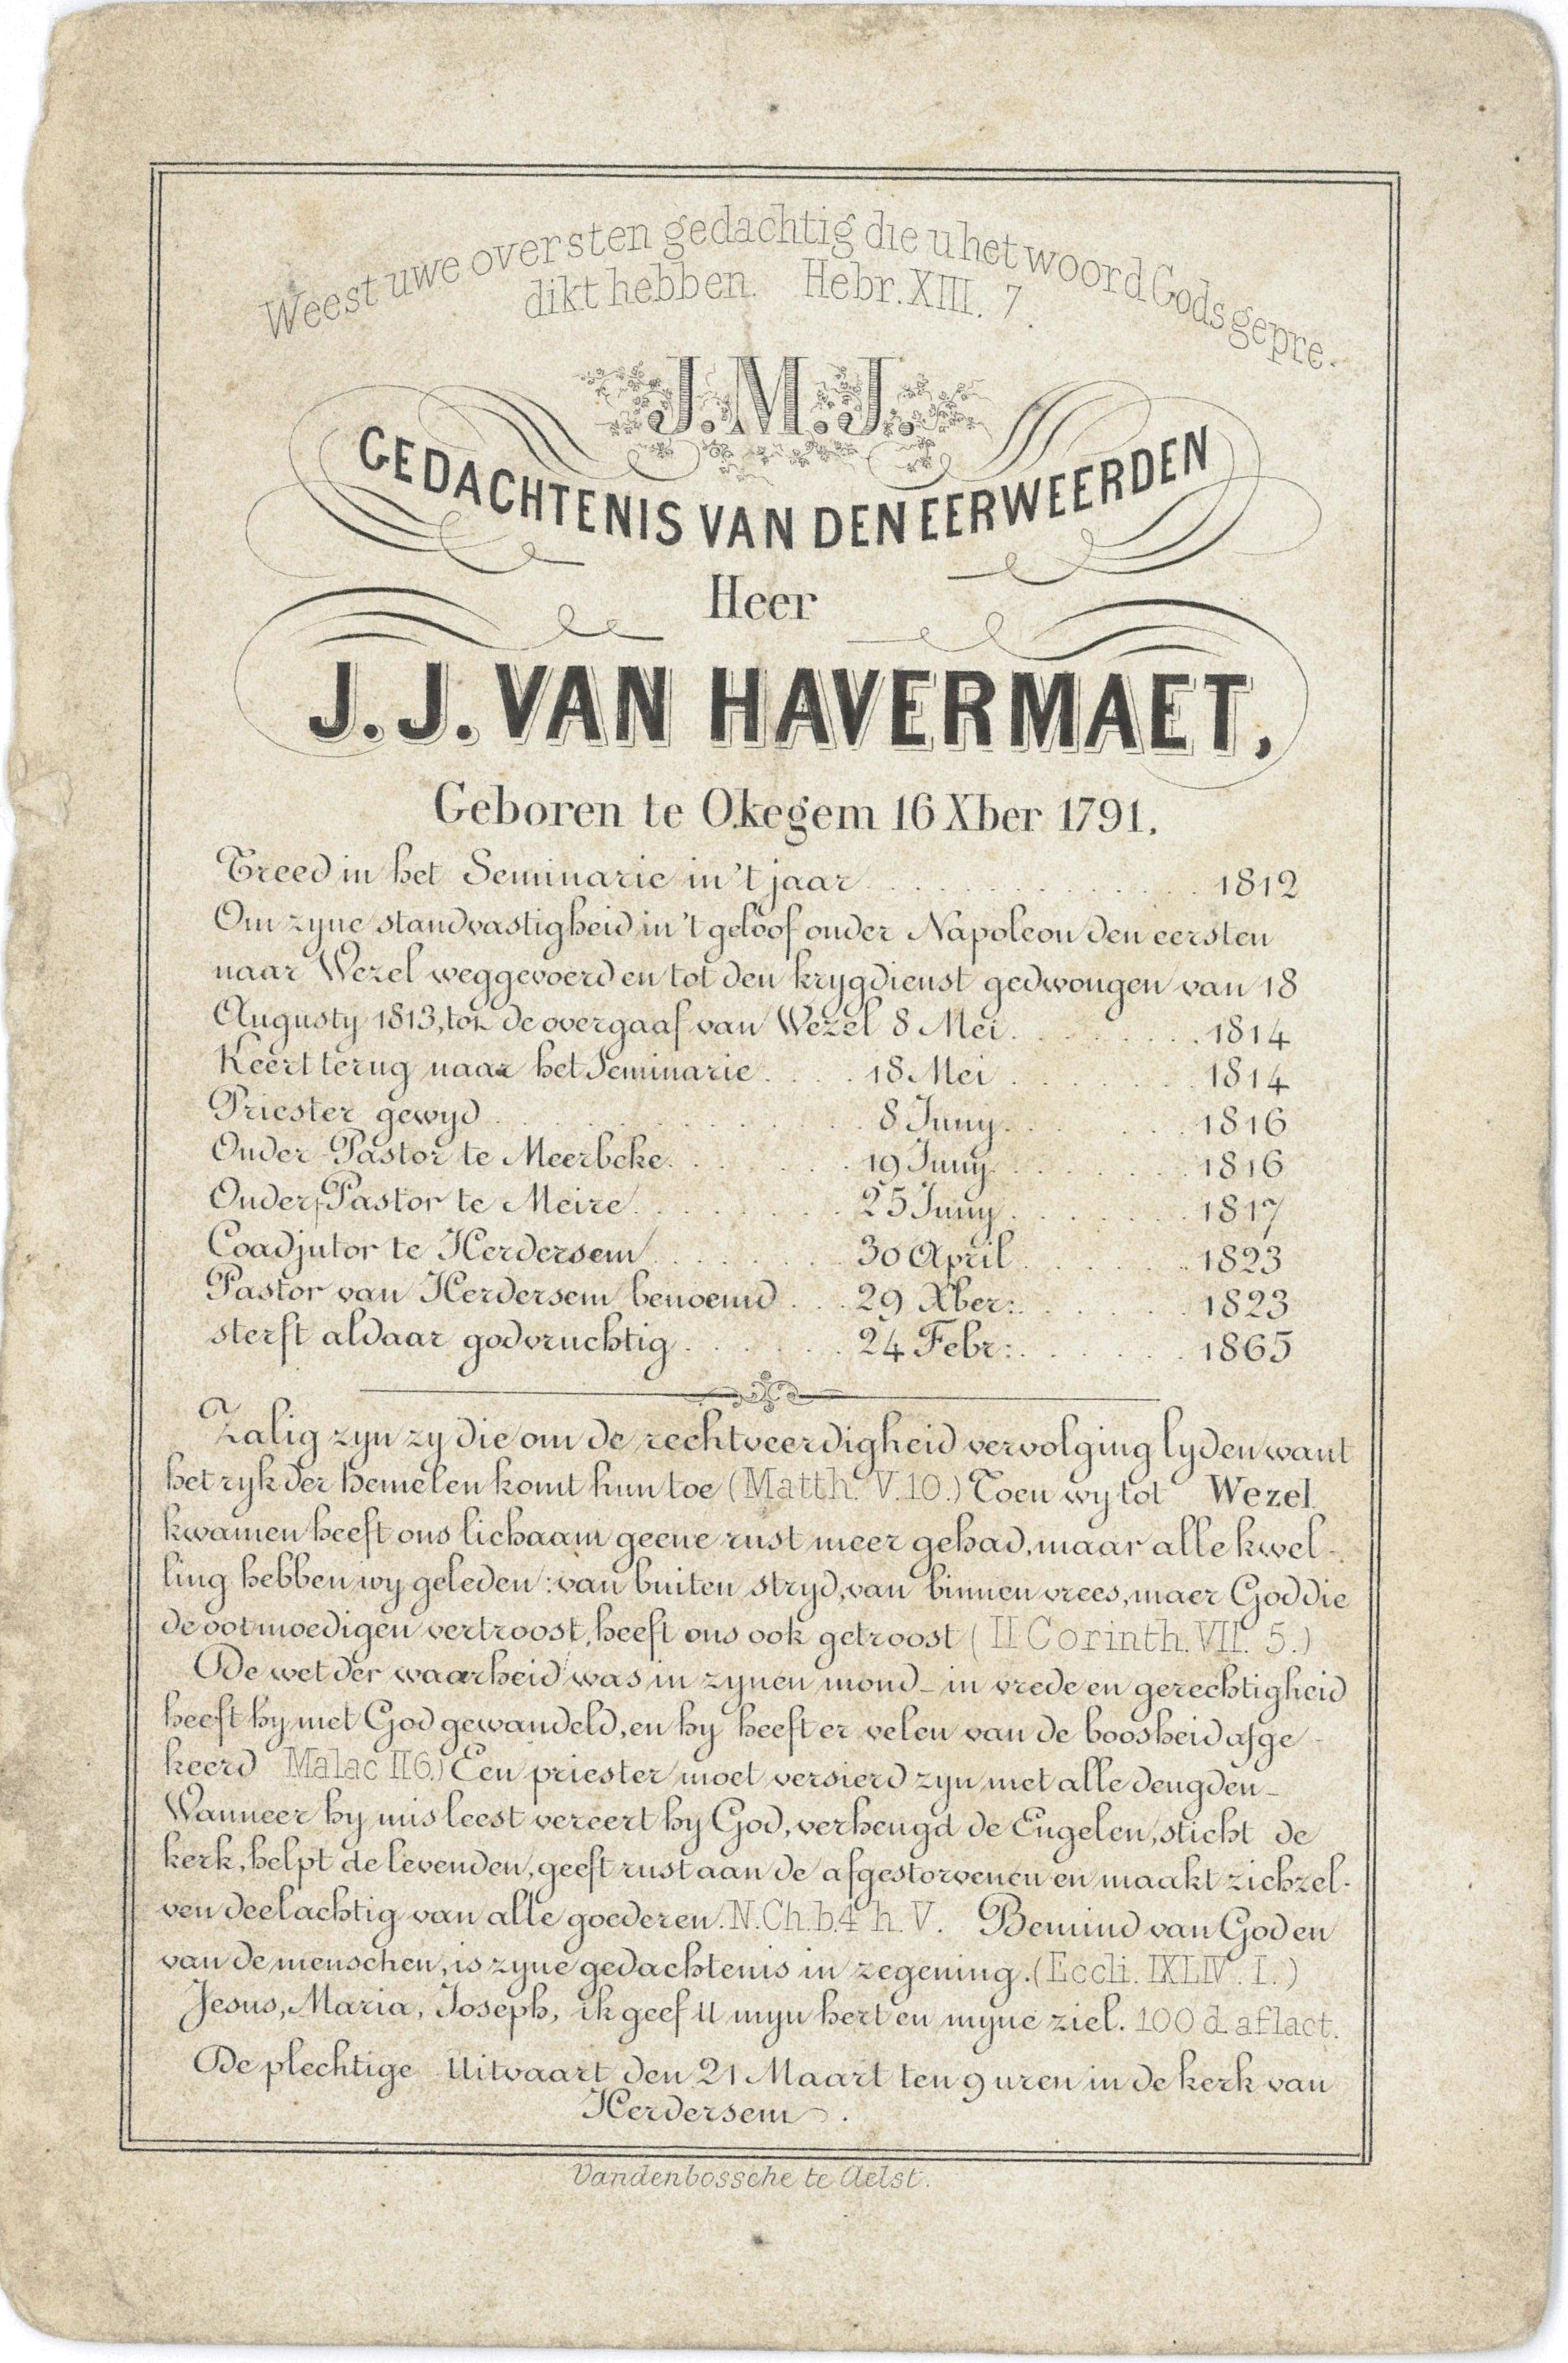 Weest uwe oversten gedachtig die u het woord Gods gepre-
dikt hebben. Hebr. XIII. 7.
J.M.J.
GEDACHTENIS VAN DEN EERWEERDEN
Heer
J. J. VAN HAVERMAET,
Geboren te Okegem 16 Xber 1791.
Treed in het Seminarie in 't jaar . . . . . . . . . . . . . . . 1812
Om zyne standvastigheid in 't geloof onder Napoleon den eersten
naar Wezel weggevoerd en tot den krygdienst gedwongen van 18
Augusty 1813, tot de overgaaf van Wezel 8 Mei . . . . . . . . 1814
Keert terug naar het Seminarie . . . . 18 Mei . . . . . . . . 1814
Priester gewyd . . . . . . . . . . . . . . 8 Juny . . . . . . . 1816
Onder-Pastor te Meerbeke . . . . . . . 19 Juny . . . . . . . 1816
Onder-Pastor te Meire . . . . . . . . 25 Juny . . . . . . . 1817
Coadjutor te Herdersem . . . . . . . 30 April . . . . . . . 1823
Pastor van Herdersem benoemd . . . 29 Xber: . . . . . . . 1823
sterft aldaar godvruchtig . . . . . . 24 Febr: . . . . . . . 1865
Zalig zyn zy die om de rechtveerdigheid vervolging lyden want
het ryk der hemelen komt hun toe (Matth. V. 10.) Toen wy tot Wezel
kwamen heeft ons lichaam geene rust meer gehad, maar alle kwel-
ling hebben wy geleden: van buiten stryd, van binnen vrees, maer God die
de ootmoedigen vertroost, heeft ons ook getroost (II Corinth. VII. 5.)
De wet der waarheid was in zynen mond - in vrede en gerechtigheid
heeft hy met God gewandeld, en hy heeft er velen van de boosheid afge-
keerd Malac II 6.) Een priester moet versierd zyn met alle deugden -
Wanneer hy mis leest vereert hy God, verheugd de Engelen, sticht de
kerk, helpt de levenden, geeft rust aan de afgestorvenen en maakt zichzel-
ven deelachtig van alle goederen. N. Ch. b. 4 h. V. Bemind van God en
van de menschen, is zyne gedachtenis in zegening. (Eccli. IXLIV. I.)
Jesus, Maria, Joseph, ik geef U myn hert en myne ziel. 100 d. aflact.
De plechtige Uitvaart den 21 Maart ten 9 uren in de kerk van
Herdersem.
Vandenbossche te Aelst.